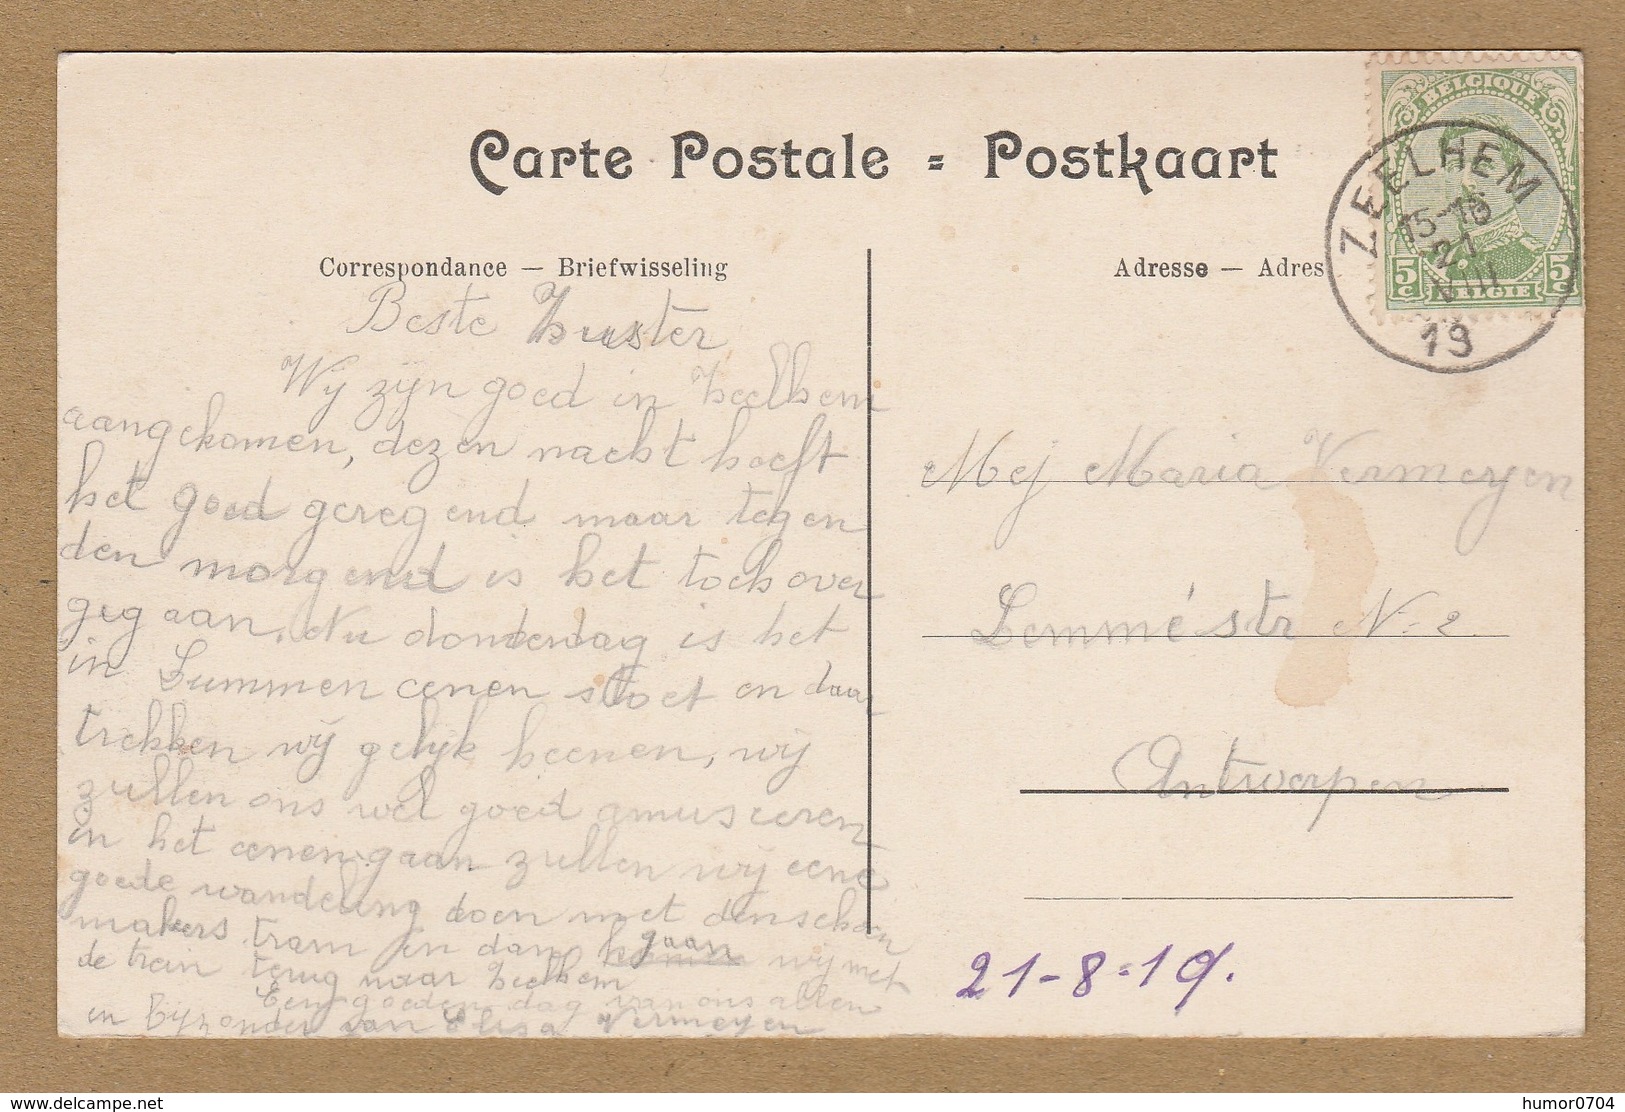 Carte Postale = Postkaart
Correspondance — Briefwisseling
Beste Zuster
Wij zijn goed in Zeelhem
aangekomen, dezen nacht heeft
het goed geregend maar tegen
den morgend is het toch over
gegaan. Nu donderdag is het
in Lummen eenen stoet en daar
trekken wij gelijk heenen, wij
zullen ons wel goed amuseeren
in het eenen gaan zullen wij eene
goede wandeling doen met den schoen
makers tram en dan gaan wij met
de trein terug naar Zeelhem
Een goeden dag van ons allen
en Bijzonder van Elisa Vermeyen
Adresse — Adres
BELGIQUE
5c BELGIE 5c
ZEELHEM
15-16
21
VIII
19
Mej Maria Vermeyen
Lemméstr N. 2.
Antwerpen
21-8-19.
delcampe.net
humor0704